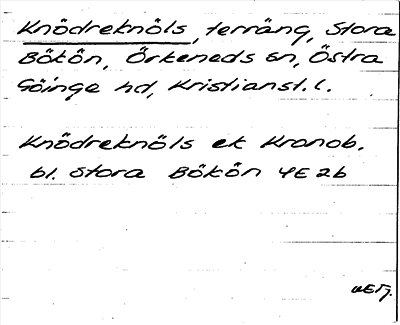 Knödreknöls, terräng, Stora
Bökön, Örkeneds sn, Östra
Göinge hd, Kristianst. l.
Knödreknöls ek Kronob.
bl. Stora Bökön 4E 2b